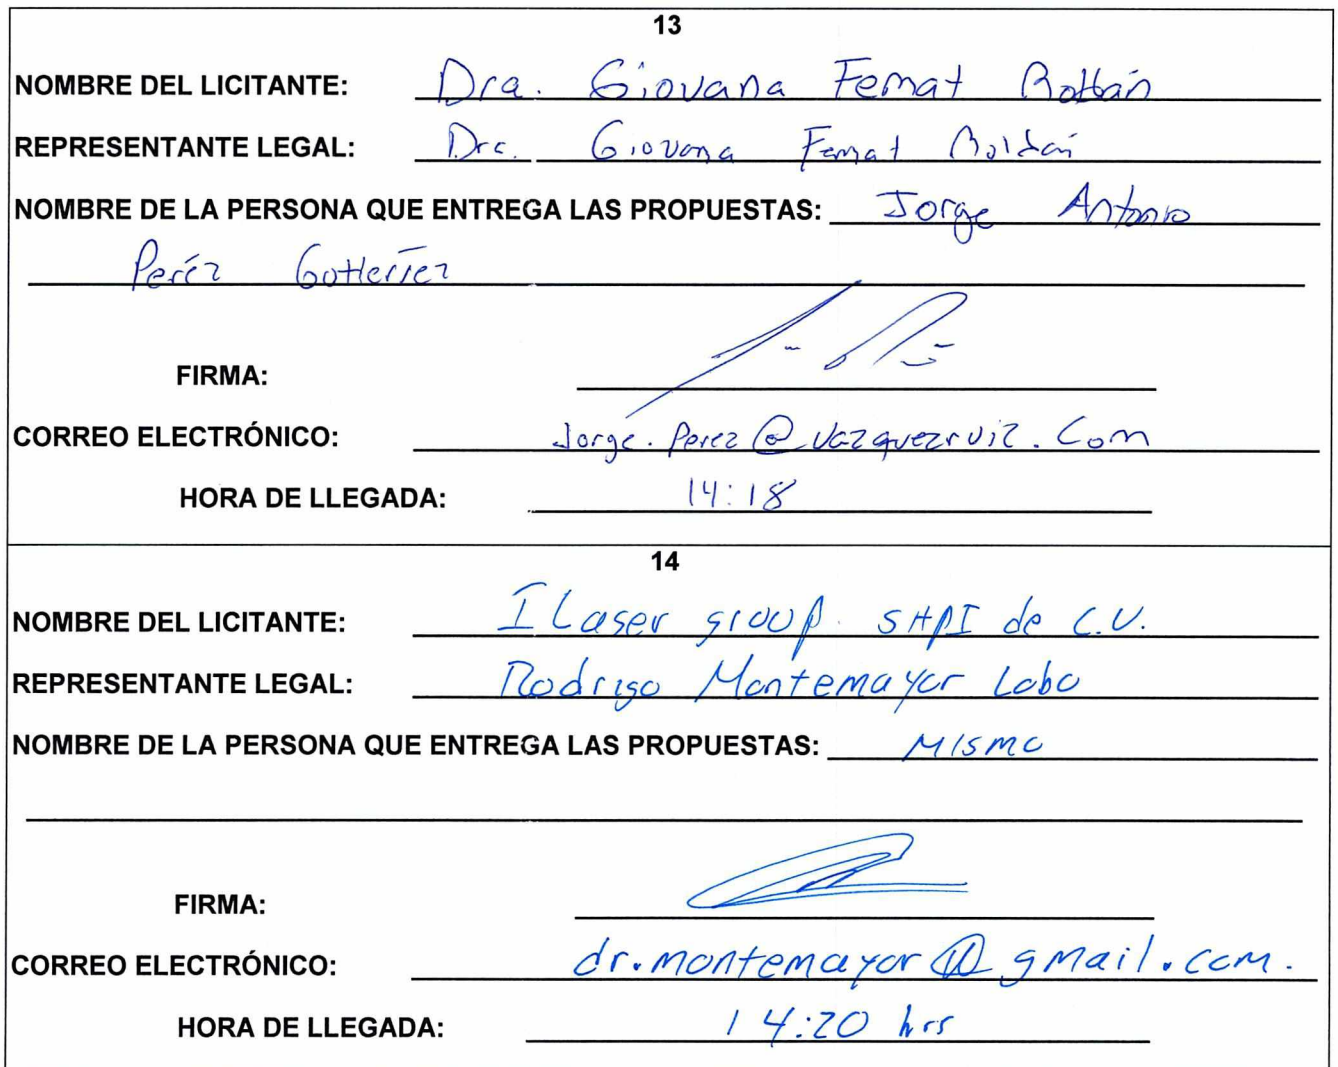 13
NOMBRE DEL LICITANTE: Dra. Giovana Femat Roldán
REPRESENTANTE LEGAL: Dra. Giovana Femat Roldán
NOMBRE DE LA PERSONA QUE ENTREGA LAS PROPUESTAS: Jorge Antonio
Peréz Gutierrez
FIRMA:
CORREO ELECTRÓNICO: Jorge.Perez@vazquezruiz.Com
HORA DE LLEGADA: 14:18
14
NOMBRE DEL LICITANTE: I Laser group. SAPI de C.V.
REPRESENTANTE LEGAL: Rodrigo Montemayor Lobo
NOMBRE DE LA PERSONA QUE ENTREGA LAS PROPUESTAS: Mismo
FIRMA:
CORREO ELECTRÓNICO: dr.montemayor@gmail.com.
HORA DE LLEGADA: 14:20 hrs